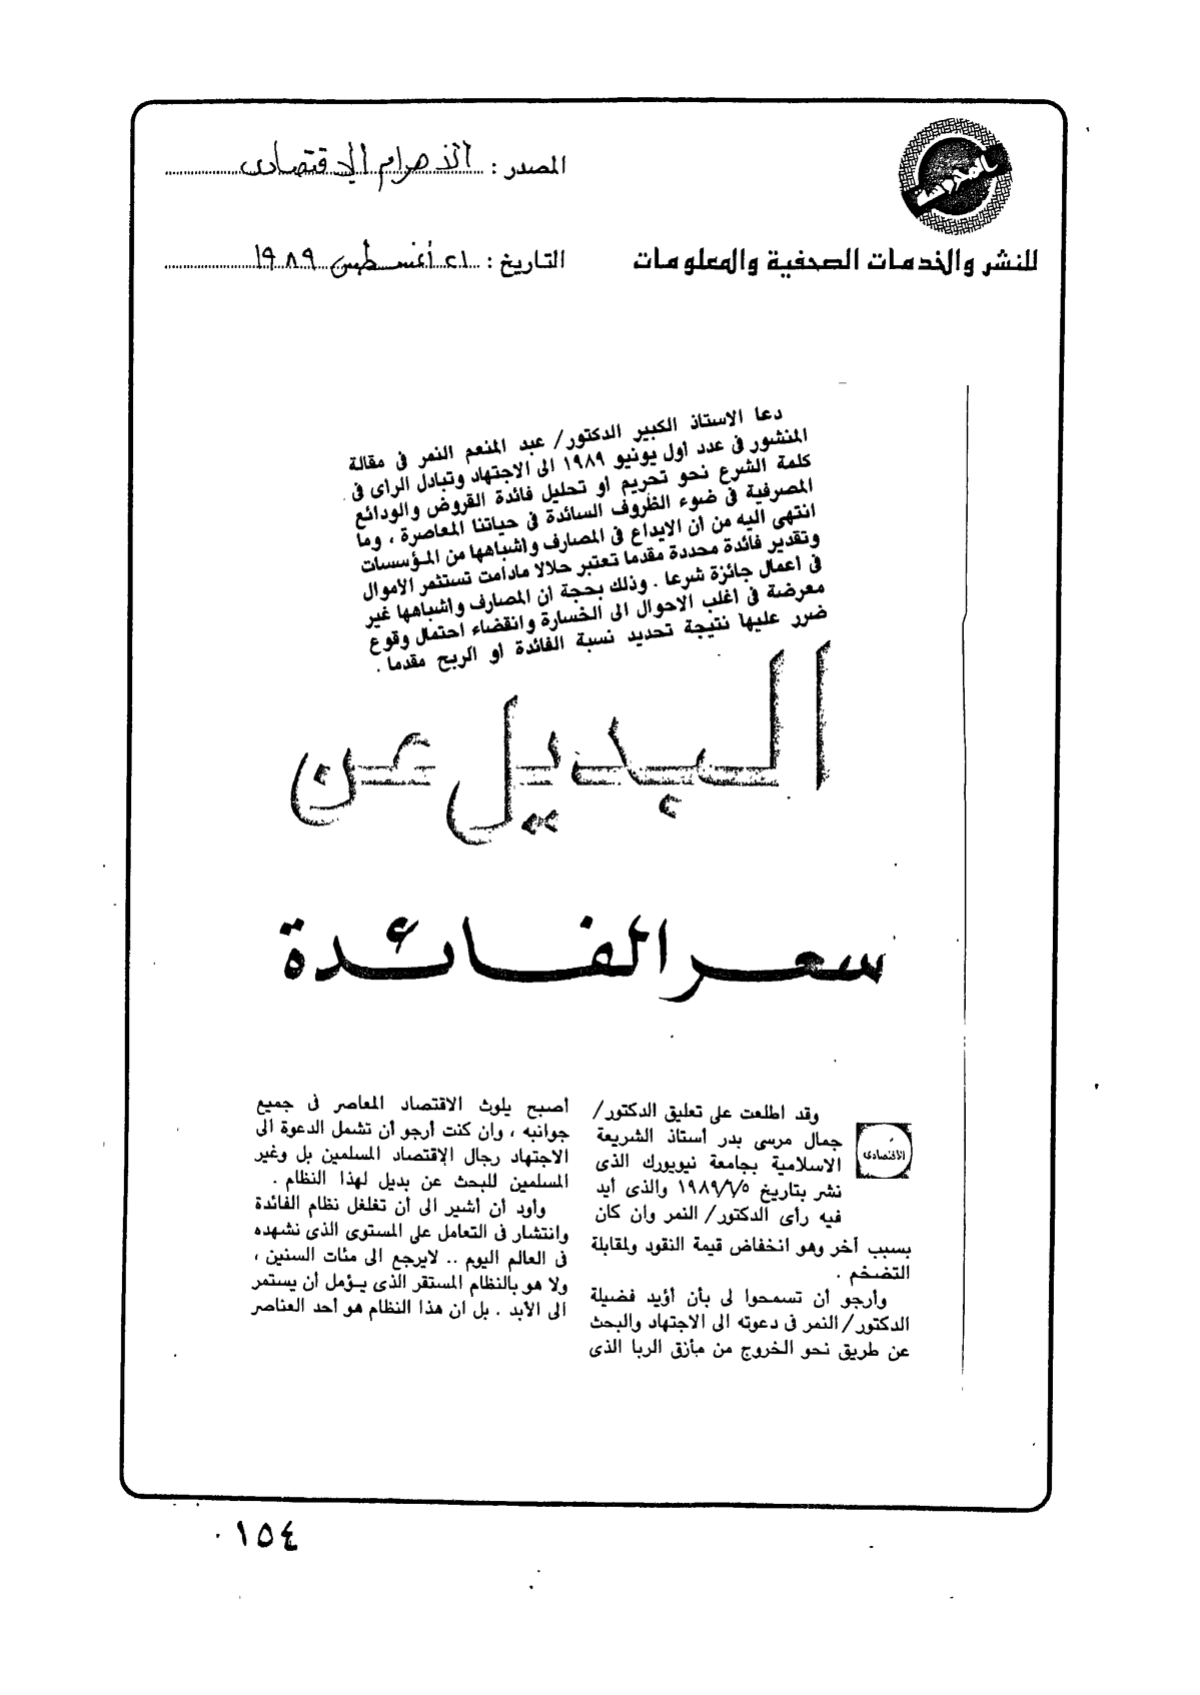 المصدر : الأهرام الإقتصادى
للنشر والخدمات الصحفية والمعلومات
التاريخ : ٢١ أغسطس ١٩٨٩
دعا الاستاذ الكبير الدكتور/ عبد المنعم النمر فى مقالة
المنشور فى عدد اول يونيو ١٩٨٩ الى الاجتهاد وتبادل الراى فى
كلمة الشرع نحو تحريم او تحليل فائدة القروض والودائع
المصرفية فى ضوء الظروف السائدة فى حياتنا المعاصرة ، وما
انتهى اليه من ان الايداع فى المصارف واشباهها من المؤسسات
وتقدير فائدة محددة مقدما تعتبر حلالا مادامت تستثمر الاموال
فى اعمال جائزة شرعا . وذلك بحجة ان المصارف واشباهها غير
معرضة فى اغلب الاحوال الى الخسارة وانقضاء احتمال وقوع
ضرر عليها نتيجة تحديد نسبة الفائدة او الربح مقدما .
البديل عن
سعر الفائدة
الاقتصادى
وقد اطلعت على تعليق الدكتور/
جمال مرسى بدر أستاذ الشريعة
الاسلامية بجامعة نيويورك الذى
نشر بتاريخ ١٩٨٩/٦/٥ والذى أيد
فيه رأى الدكتور/ النمر وان كان
بسبب آخر وهو انخفاض قيمة النقود ولمقابلة
التضخم .
وأرجو أن تسمحوا لى بأن أؤيد فضيلة
الدكتور/ النمر فى دعوته الى الاجتهاد والبحث
عن طريق نحو الخروج من مأزق الربا الذى
أصبح يلوث الاقتصاد المعاصر فى جميع
جوانبه ، وان كنت أرجو أن تشمل الدعوة الى
الاجتهاد رجال الإقتصاد المسلمين بل وغير
المسلمين للبحث عن بديل لهذا النظام .
وأود أن أشير الى أن تغلغل نظام الفائدة
وانتشار فى التعامل على المستوى الذى نشهده
فى العالم اليوم .. لايرجع الى مئات السنين ،
ولا هو بالنظام المستقر الذى يؤمل أن يستمر
الى الأبد . بل ان هذا النظام هو أحد العناصر
٠١٥٤